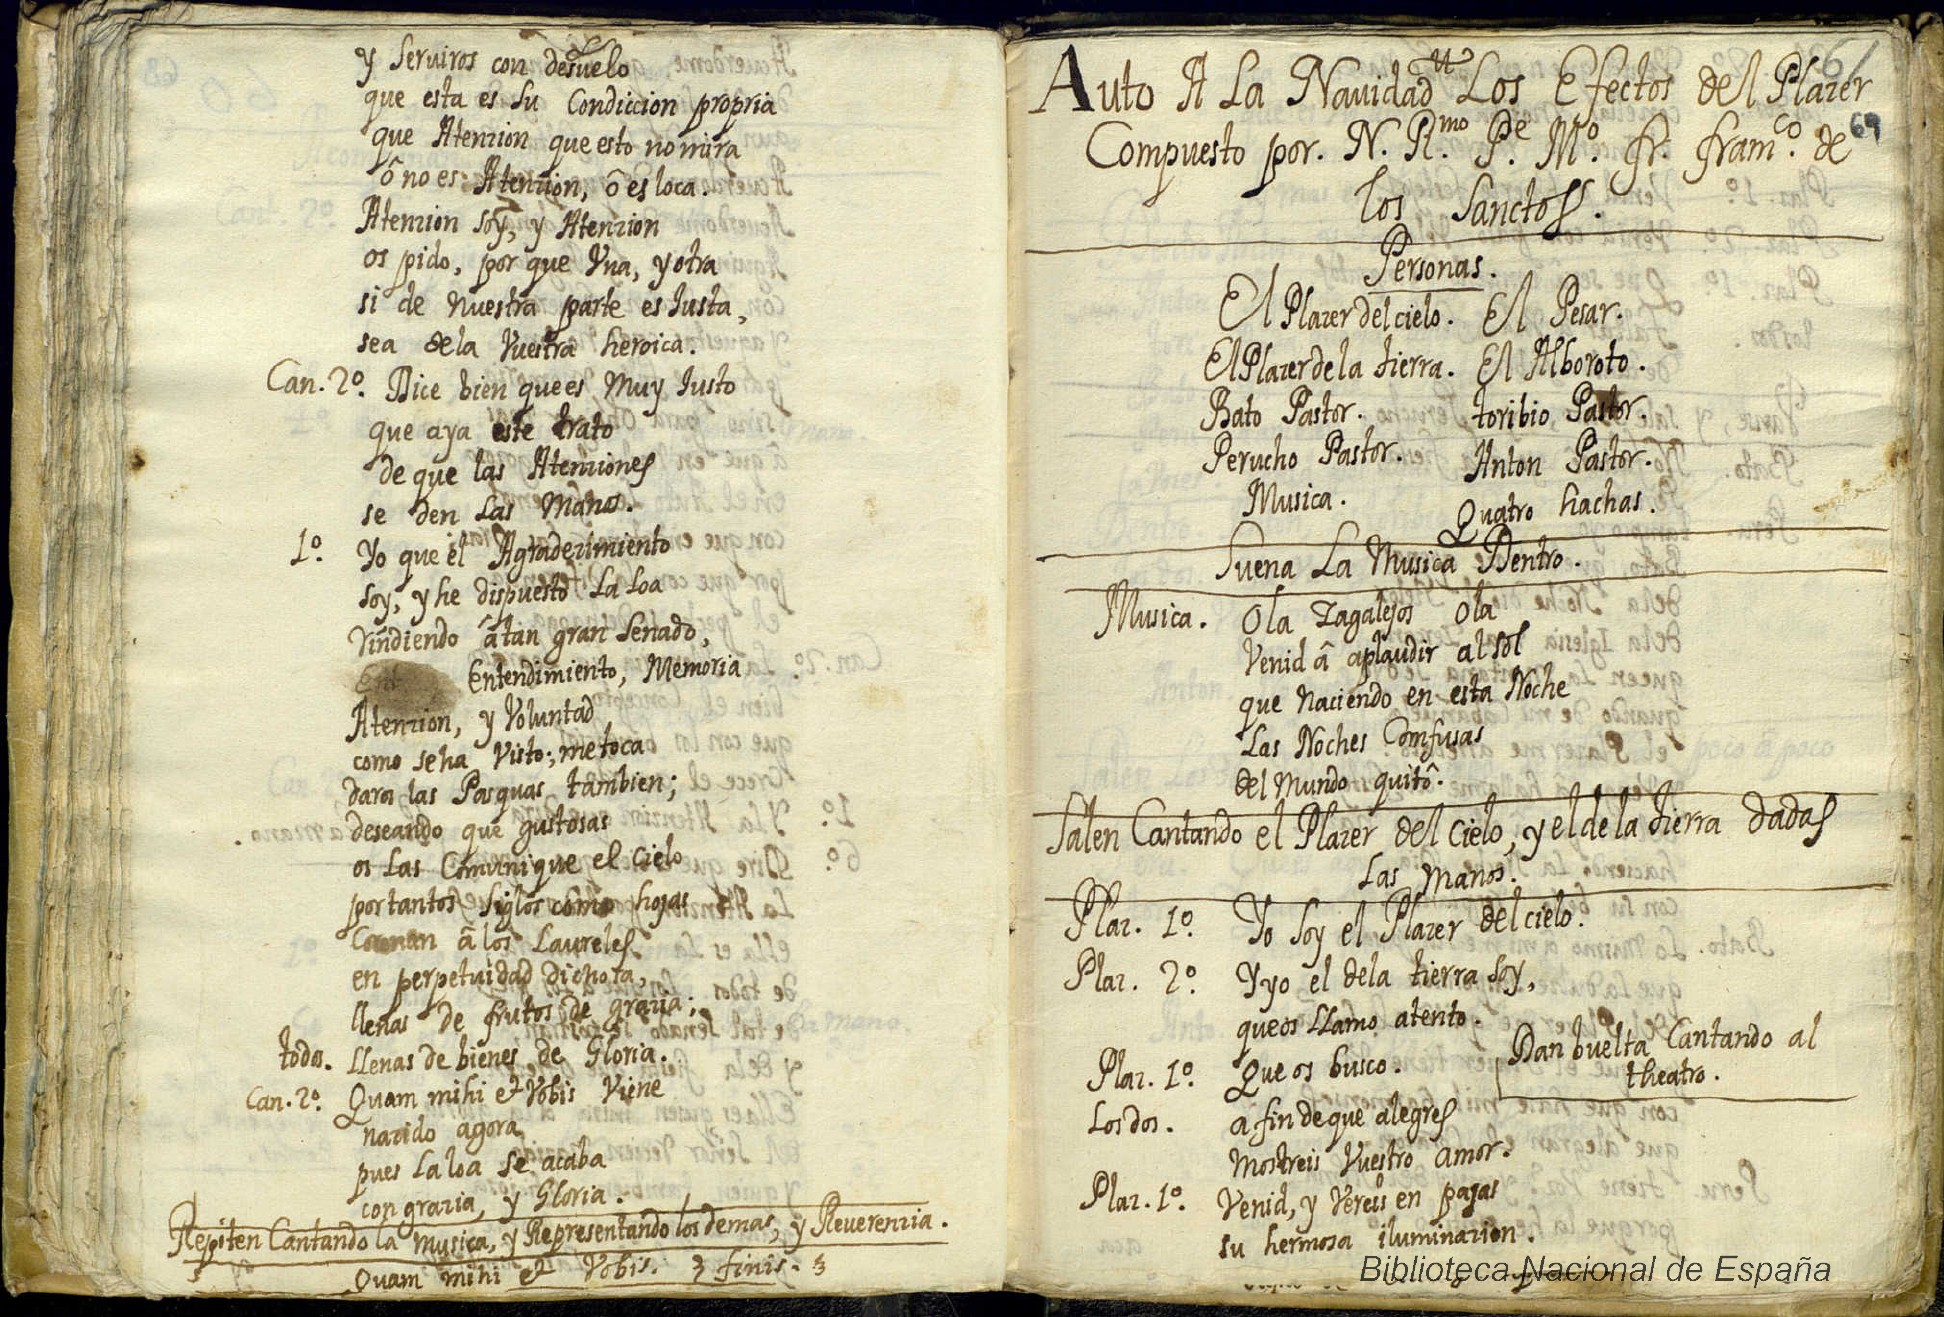 y serviros con desuelo
que esta es su Condiccion propria
que Atenzion que esto no mira
ô no es Atenzion, ô es loca.
Atenzion soy, y Atenzion
os pido, por que Vna, y otra
si de nuestra parte es Iusta,
sea dela Vuestra heroica.
Can. 2º. Dice bien que es Muy Iusto
que aya este trato
de que las Atenziones
se den las Manos.
1º. Yo que el Agradezimiento
soy, y he dispuesto La Loa
Rindiendo â tan gran Senado,
Entendimiento, Memoria
Atenzion, y Voluntad
como se ha Visto; me toca
dara las Pasquas tambien;
deseando que gustosas
os Las Comunique el Cielo
por tantos siglos como hojas
Coronan â los Laureles
en perpetuidad dichosa,
llenas de frutos de grazia;
todos. Llenas de bienes de Gloria.
Can. 2º. Quam mihi et Vobis Viene
nazido agora
pues La loa se acaba
con grazia, y Gloria.
Repiten Cantando la Musica, y Representando los demas, y Reuerenzia.
Quam mihi et Vobis. finis.
61
Auto A La Navidad Los Efectos del Plazer
69
Compuesto por. N. R.mo P.e M.º fr. framco. de
los Sanctos.
Personas.
El Plazer del cielo. El Pesar.
El Plazer de la tierra. El Alboroto.
Bato Pastor. toribio Pastor.
Perucho Pastor. Anton Pastor.
Musica. Quatro hachas.
Suena La Musica Dentro.
Musica. Ola Zagalejos Ola
Venid â aplaudir al Sol
que Naciendo en esta Noche
Las Noches Comfusas
del Mundo quitô.
Salen Cantando el Plazer del Cielo, y el de la tierra dadas
Las Manos.
Plaz. 1º. Yo Soy el Plazer del cielo.
Plaz. 2º. Y yo el dela tierra soy,
que os LLamo atento.
Plaz. 1º. Que os busco.
Dan buelta Cantando al
theatro.
Los dos. a fin de que alegres
Mostreis Vuestro amor.
Plaz. 1º. Venid, y Vereis en pajas
su hermosa iluminazion.
Biblioteca Nacional de España